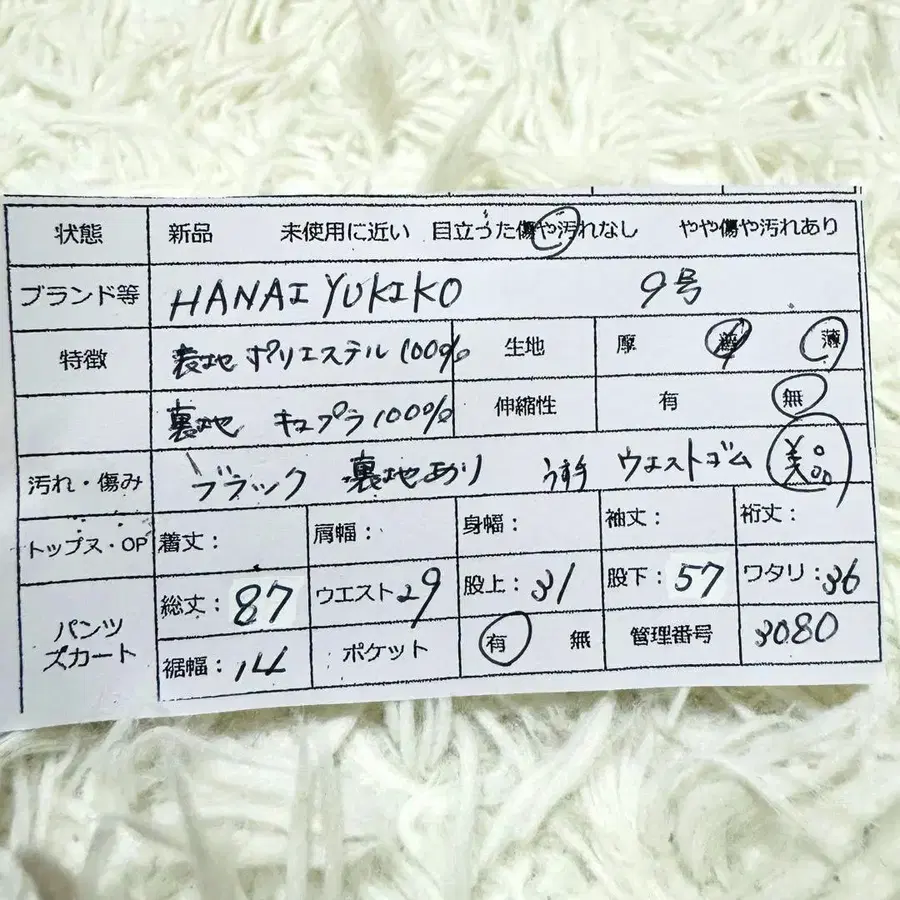 状態 新品 未使用に近い 目立った傷や汚れなし やや傷や汚れあり
ブランド等 HANAI YUKIKO 9号
特徴 表地 ポリエステル 100% 生地 厚 薄
裏地 キュプラ 100% 伸縮性 有 無
汚れ・傷み ブラック 裏地あり うす手 ウエストゴム
トップス・OP 着丈: 肩幅: 身幅: 袖丈: 裄丈:
パンツ スカート 総丈: 87 ウエスト 29 股上: 31 股下: 57 ワタリ: 36
裾幅: 14 ポケット 有 無 管理番号 3080